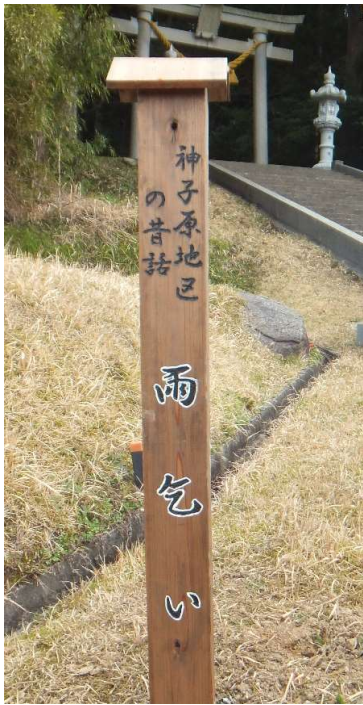 神子原地区
の昔話
雨乞い